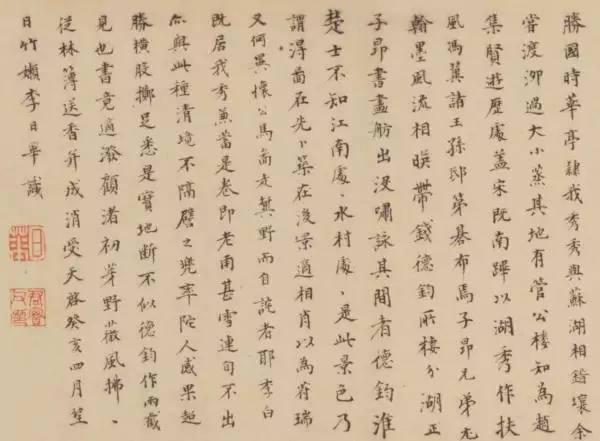 勝國時華亭隷我秀秀與蘇湖相錯壤余
嘗渡泖過大小蒸其地有管公樓知為趙
集賢遊歷處蓋宋既南蹕以湖秀作扶
風馮翼諸王孫邸第碁布焉子昂兄弟尤
翰墨風流相暎帶錢德鈞所棲分湖正
子昂書畫舫出没嘯詠其間者德鈞淮
楚士不知江南處〻水村處〻是此景色乃
謂得圖在先卜築在後景適相肖以為符瑞
又何異懷公馬圖走冀野而自詫者耶李白
既居我秀兼當是卷即老雨甚雪連旬不出
亦與此種清境不隔譬之兜率陀人感果超
勝横股擲足悉是寶地斷不似德鈞作兩截
見也書竟適潑顧渚初芽野薇風拂〻
從林薄送香并成消受天啓癸亥四月望
日竹嬾李日華識
日華